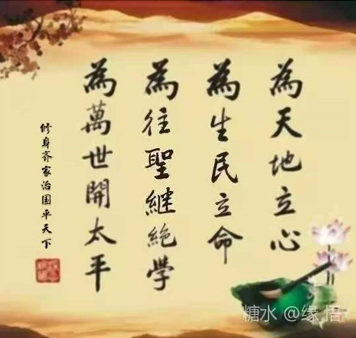 為天地立心
為生民立命
為往聖継絶學
為萬世開太平
修身齐家治国平天下
糖水 @缘 悟